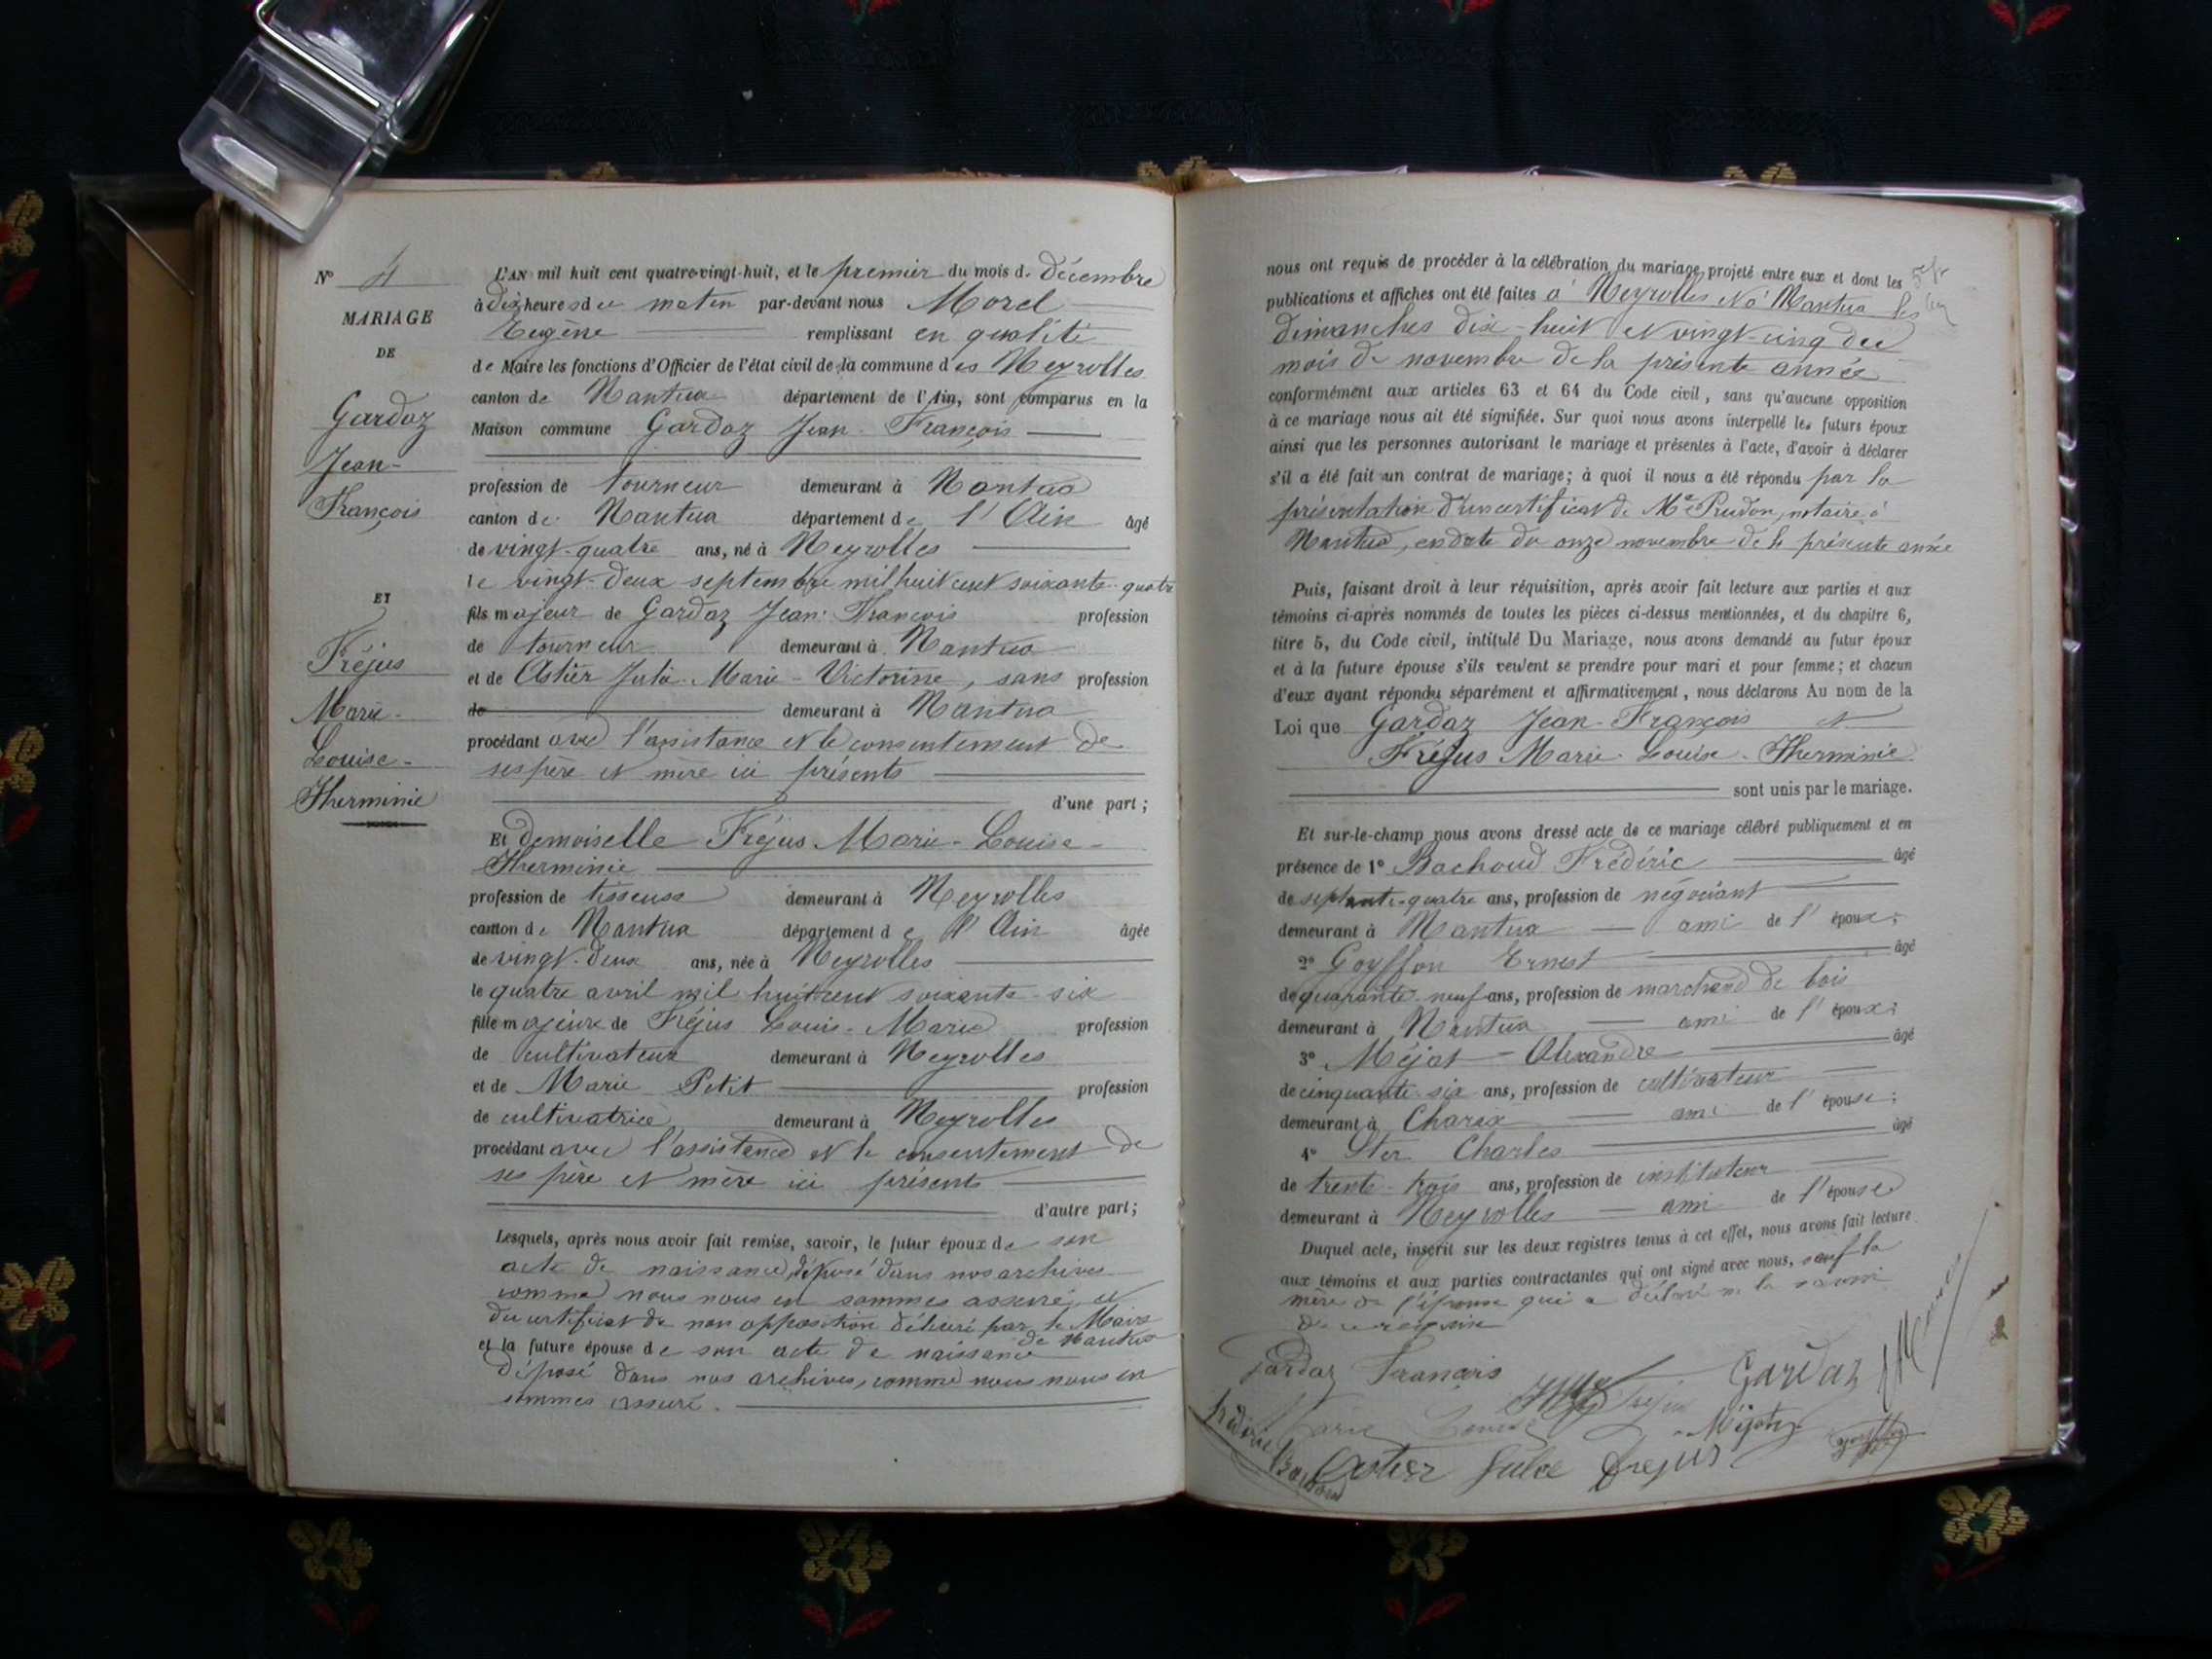 N° 4
MARIAGE
DE
Gardaz
Jean-
François
ET
Fréjus
Marie-
Louise-
Herminie
L'AN mil huit cent quatre-vingt-huit, et le premier du mois de décembre
à dix heures du matin par-devant nous Morel
Eugène remplissant en qualité
de Maire les fonctions d'Officier de l'état civil de la commune des Neyrolles
canton de Nantua département de l'Ain, sont comparus en la
Maison commune Gardaz Jean-François
profession de tourneur demeurant à Nantua
canton de Nantua département de l'Ain âgé
de vingt-quatre ans, né à Neyrolles
le vingt-deux septembre mil huit cent soixante-quatre
fils majeur de Gardaz Jean-François profession
de tourneur demeurant à Nantua
et de Astier Julie-Marie-Victorine, sans profession
de demeurant à Nantua
procédant avec l'assistance et le consentement de
ses père et mère ici présents
d'une part;
Et demoiselle Fréjus Marie-Louise-
Herminie
profession de tisseuse demeurant à Neyrolles
canton de Nantua département de l'Ain âgée
de vingt-deux ans, née à Neyrolles
le quatre avril mil huit cent soixante-six
fille majeure de Fréjus Louis-Marie profession
de cultivateur demeurant à Neyrolles
et de Marie Petit profession
de cultivatrice demeurant à Neyrolles
procédant avec l'assistance et le consentement de
ses père et mère ici présents
d'autre part;
Lesquels, après nous avoir fait remise, savoir, le futur époux de son
acte de naissance, déposé dans nos archives
comme nous nous en sommes assuré, et
du certificat de non opposition délivré par le Maire
de Nantua
et la future épouse de son acte de naissance
déposé dans nos archives, comme nous nous en
sommes assuré.
nous ont requis de procéder à la célébration du mariage projeté entre eux et dont les
publications et affiches ont été faites à Neyrolles et à Nantua les
dimanches dix-huit et vingt-cinq du
mois de novembre de la présente année
conformément aux articles 63 et 64 du Code civil, sans qu'aucune opposition
à ce mariage nous ait été signifiée. Sur quoi nous avons interpellé les futurs époux
ainsi que les personnes autorisant le mariage et présentes à l'acte, d'avoir à déclarer
s'il a été fait un contrat de mariage; à quoi il nous a été répondu par la
présentation d'un certificat de Me Prudon, notaire à
Nantua, en date du onze novembre de la présente année
Puis, faisant droit à leur réquisition, après avoir fait lecture aux parties et aux
témoins ci-après nommés de toutes les pièces ci-dessus mentionnées, et du chapitre 6,
titre 5, du Code civil, intitulé Du Mariage, nous avons demandé au futur époux
et à la future épouse s'ils veulent se prendre pour mari et pour femme; et chacun
d'eux ayant répondu séparément et affirmativement, nous déclarons Au nom de la
Loi que Gardaz Jean-François et
Fréjus Marie-Louise-Herminie
sont unis par le mariage.
Et sur-le-champ nous avons dressé acte de ce mariage célébré publiquement et en
présence de 1° Bachoud Frédéric âgé
de septante-quatre ans, profession de négociant
demeurant à Nantua ami de l'époux;
2° Goyffon Ernest âgé
de quarante-neuf ans, profession de marchand de bois
demeurant à Nantua ami de l'époux;
3° Méjat Alexandre âgé
de cinquante-six ans, profession de cultivateur
demeurant à Charix ami de l'épouse;
4° Ster Charles âgé
de trente-trois ans, profession de instituteur
demeurant à Neyrolles ami de l'épouse
Duquel acte, inscrit sur les deux registres tenus à cet effet, nous avons fait lecture
aux témoins et aux parties contractantes qui ont signé avec nous, sauf la
mère de l'épouse qui a déclaré ne le savoir
de ce requise
Gardaz Francois
Gardaz
Marie Louise
Méjat
Astier Julie Frejus